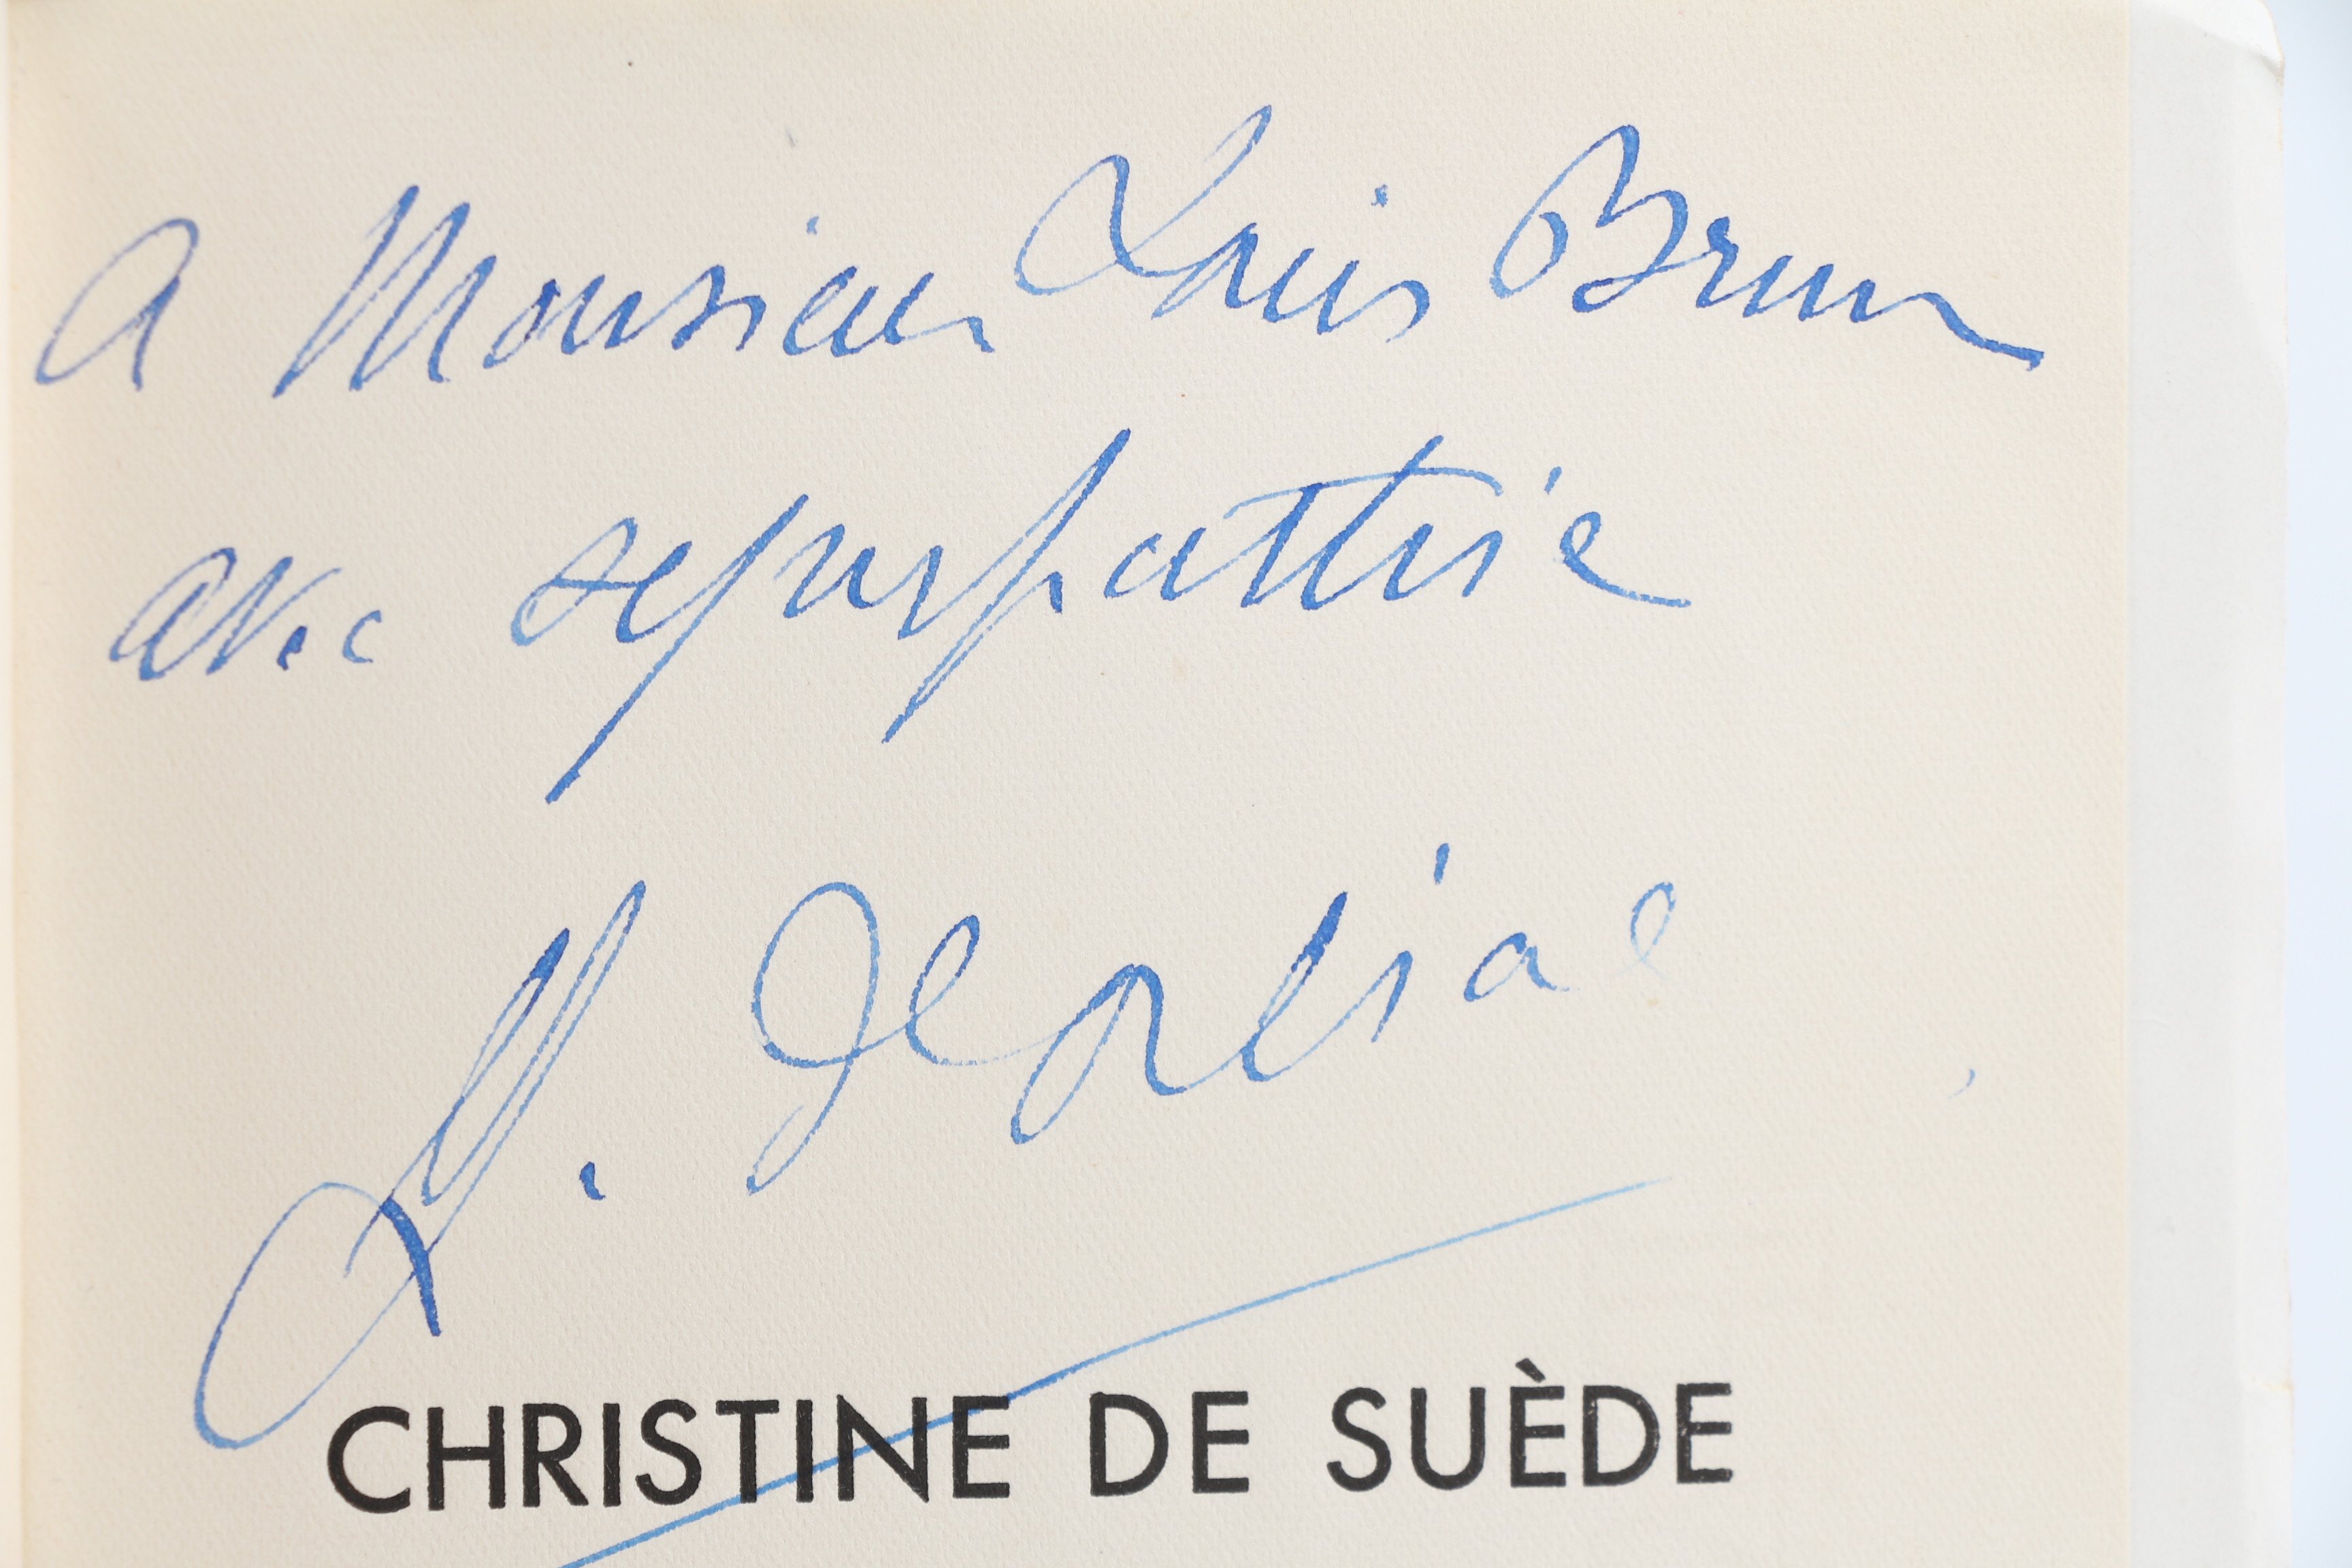 A Monsieur Louis Brun
avec sympathie
J. Dorliac
CHRISTINE DE SUÈDE